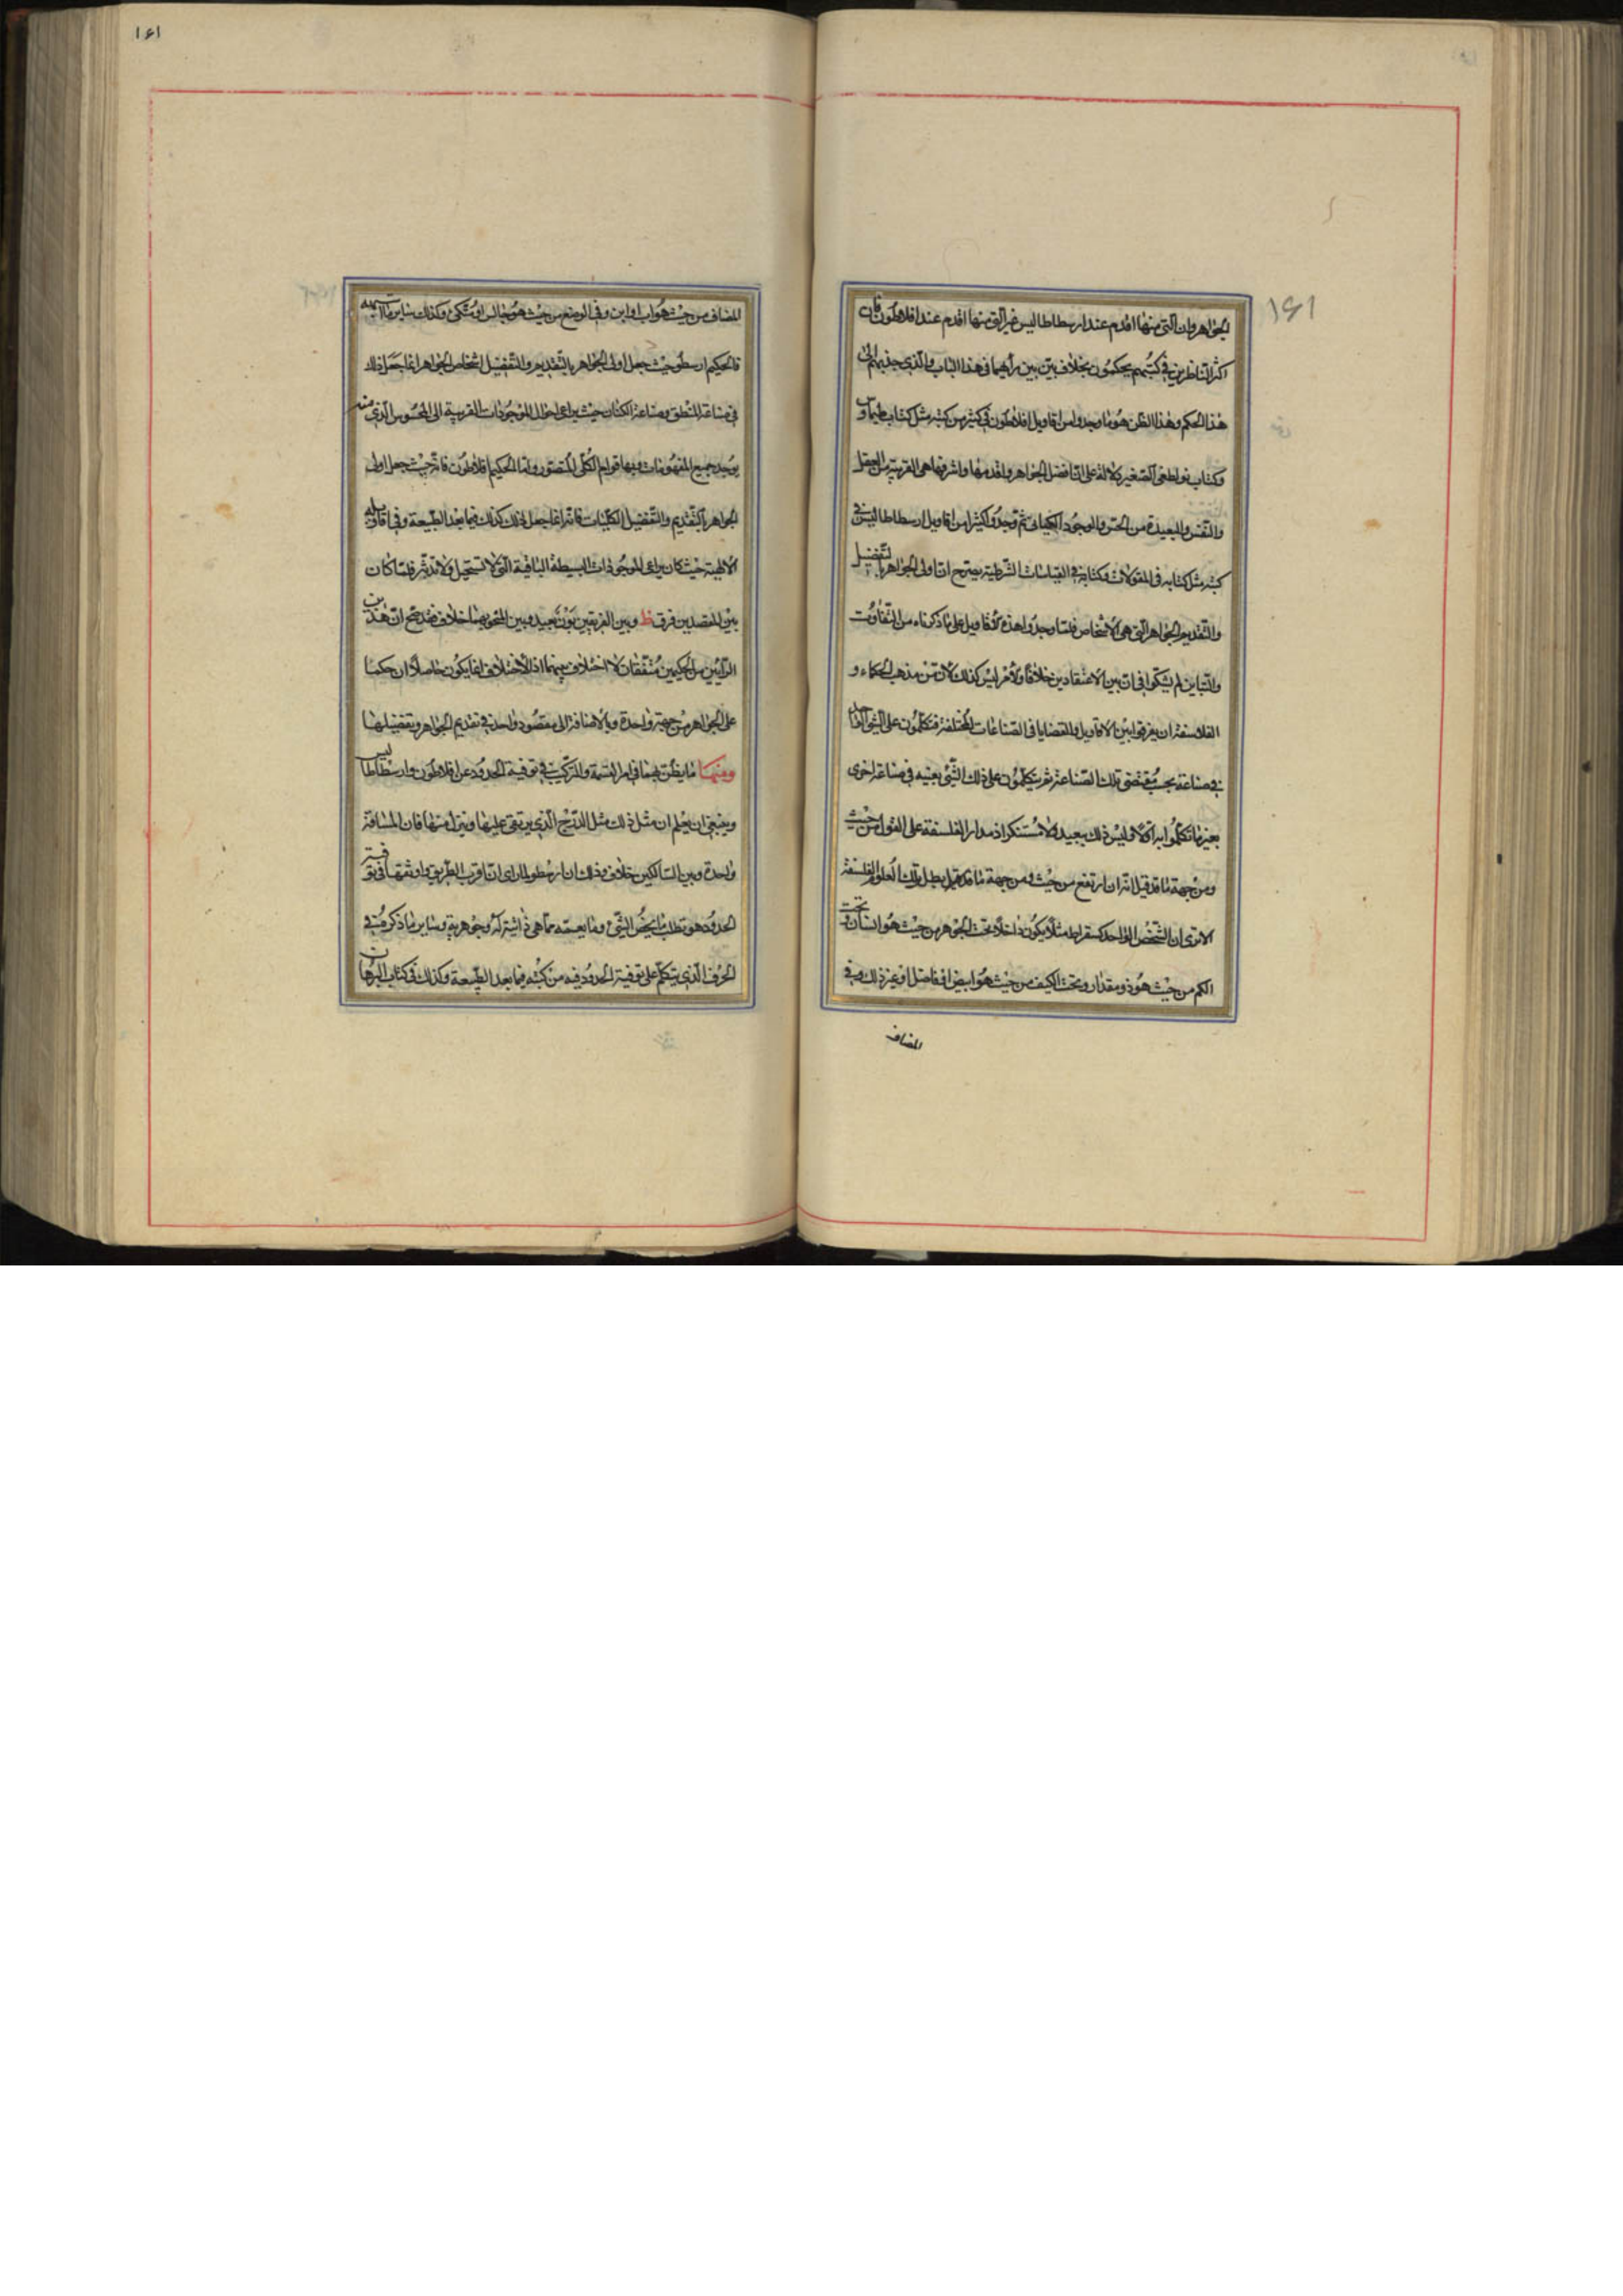 الجواهر وان التی منها اقدم عند ارسطاطالیس غیر التی منها اقدم عند افلاطون فان
اکثر الناظرین فی کتبهم یحکمون بخلاف بین بین رأیهما فی هذا الباب والذی جذبهم الی
هذا الحکم وهذا الظن هو ما وجدوا من اقاویل افلاطون فی کثیر من کتبه مثل کتاب طیماوس
وکتاب بولطقی الصغیر دلالة علی ان افضل الجواهر واقدمها واشرفها هی القریبة من العقل
والنفس والبعیدة من الحس والوجود الکیانی ثم وجدوا کثیرا من اقاویل ارسطاطالیس فی
کتبه مثل کتابه فی المقولات وکتابه فی القیاسات الشرطیة یصرح ان اولی الجواهر بالتفضیل
والتقدیم الجواهر التی هی الاشخاص فلما وجدوا هذه الاقاویل علی ما ذکرناه من التفاوت
والتباین لم یشکوا فی ان بین الاعتقادین خلافا والامر لیس کذلک لان من مذهب الحکماء و
الفلاسفة ان یفرقوا بین الاقاویل والقضایا فی الصناعات المختلفة فیتکلمون علی الشی الواحد
فی صناعة بحسب مقتضی تلک الصناعة ثم یتکلمون علی ذلک الشئ بعینه فی صناعة اخری
بغیر ما تکلموا به اولا ولیس ذلک ببعید ولا مستنکر اذ مدار الفلسفة علی القول من حیث
ومن جهة ما قد قیل انه ان ارتفع من حیث ومن جهة ما قد قیل بطل تلک العلوم والفلسفة
الا تری ان الشخص الواحد کسقراط مثلا یکون داخلا تحت الجوهر من حیث هو انسان وتحت
الکم من حیث هو ذو مقدار وتحت الکیف من حیث هو ابیض او فاضل او غیر ذلک وفی
المضاف
۱۶۱
۱۶۱
المضاف من حیث هو اب او ابن وفی الوضع من حیث هو جالس او متکئ وکذلک سایر ما اشبهه
فالحکیم ارسطو حیث جعل اولی الجواهر بالتقدیم والتفضیل اشخاص الجواهر انما جعل ذلک
فی صناعة المنطق وصناعة الکیان حیث یراعی احوال الموجودات القریبة الی المحسوس الذی منه
یوجد جمیع المفهومات وبها قوام الکلی المتصور واما الحکیم افلاطون فانه حیث جعل اولی
الجواهر بالتقدیم والتفضیل الکلیات فانه انما جعل ذلک کذلک فیما بعد الطبیعة وفی اقاویله
الالهیة حیث کان یراعی الموجودات البسیطة الباقیة التی لا تستحیل ولا تدثر فلما کان
بین المقصدین فرق ظ وبین الفریقین بون بعید وبین المبحوث عنهما خلاف فقد صح ان هذین
الرأیین من الحکیمین متفقان لا اختلاف بینهما اذ الاختلاف انما یکون حاصلا ان حکما
علی الجواهر من جهة واحدة وبالاضافة الی مقصود واحد فی تقدیم الجواهر وتفضیلها
ومنها ما یظن بهما فی امر القسمة والترکیب فی توفیة الحدود عن افلاطون وارسطاطالیس
وینبغی ان یعلم ان مثل ذلک مثل الدرج الذی یرتقی علیها وینزل منها فان المسافة
واحدة وبین السالکین خلاف وذلک ان ارسطو لما رای ان اقرب الطریق واوثقها فی توفیة
الحدود هو بتطلب ما یخص الشئ وما یعمه مما هی ذاتیة له وجوهریة وسایر ما ذکره فی
الحرف الذی یتکلم علی توفیة الحدود فیه من کتبه فیما بعد الطبیعة وکذلک فی کتاب البرهان